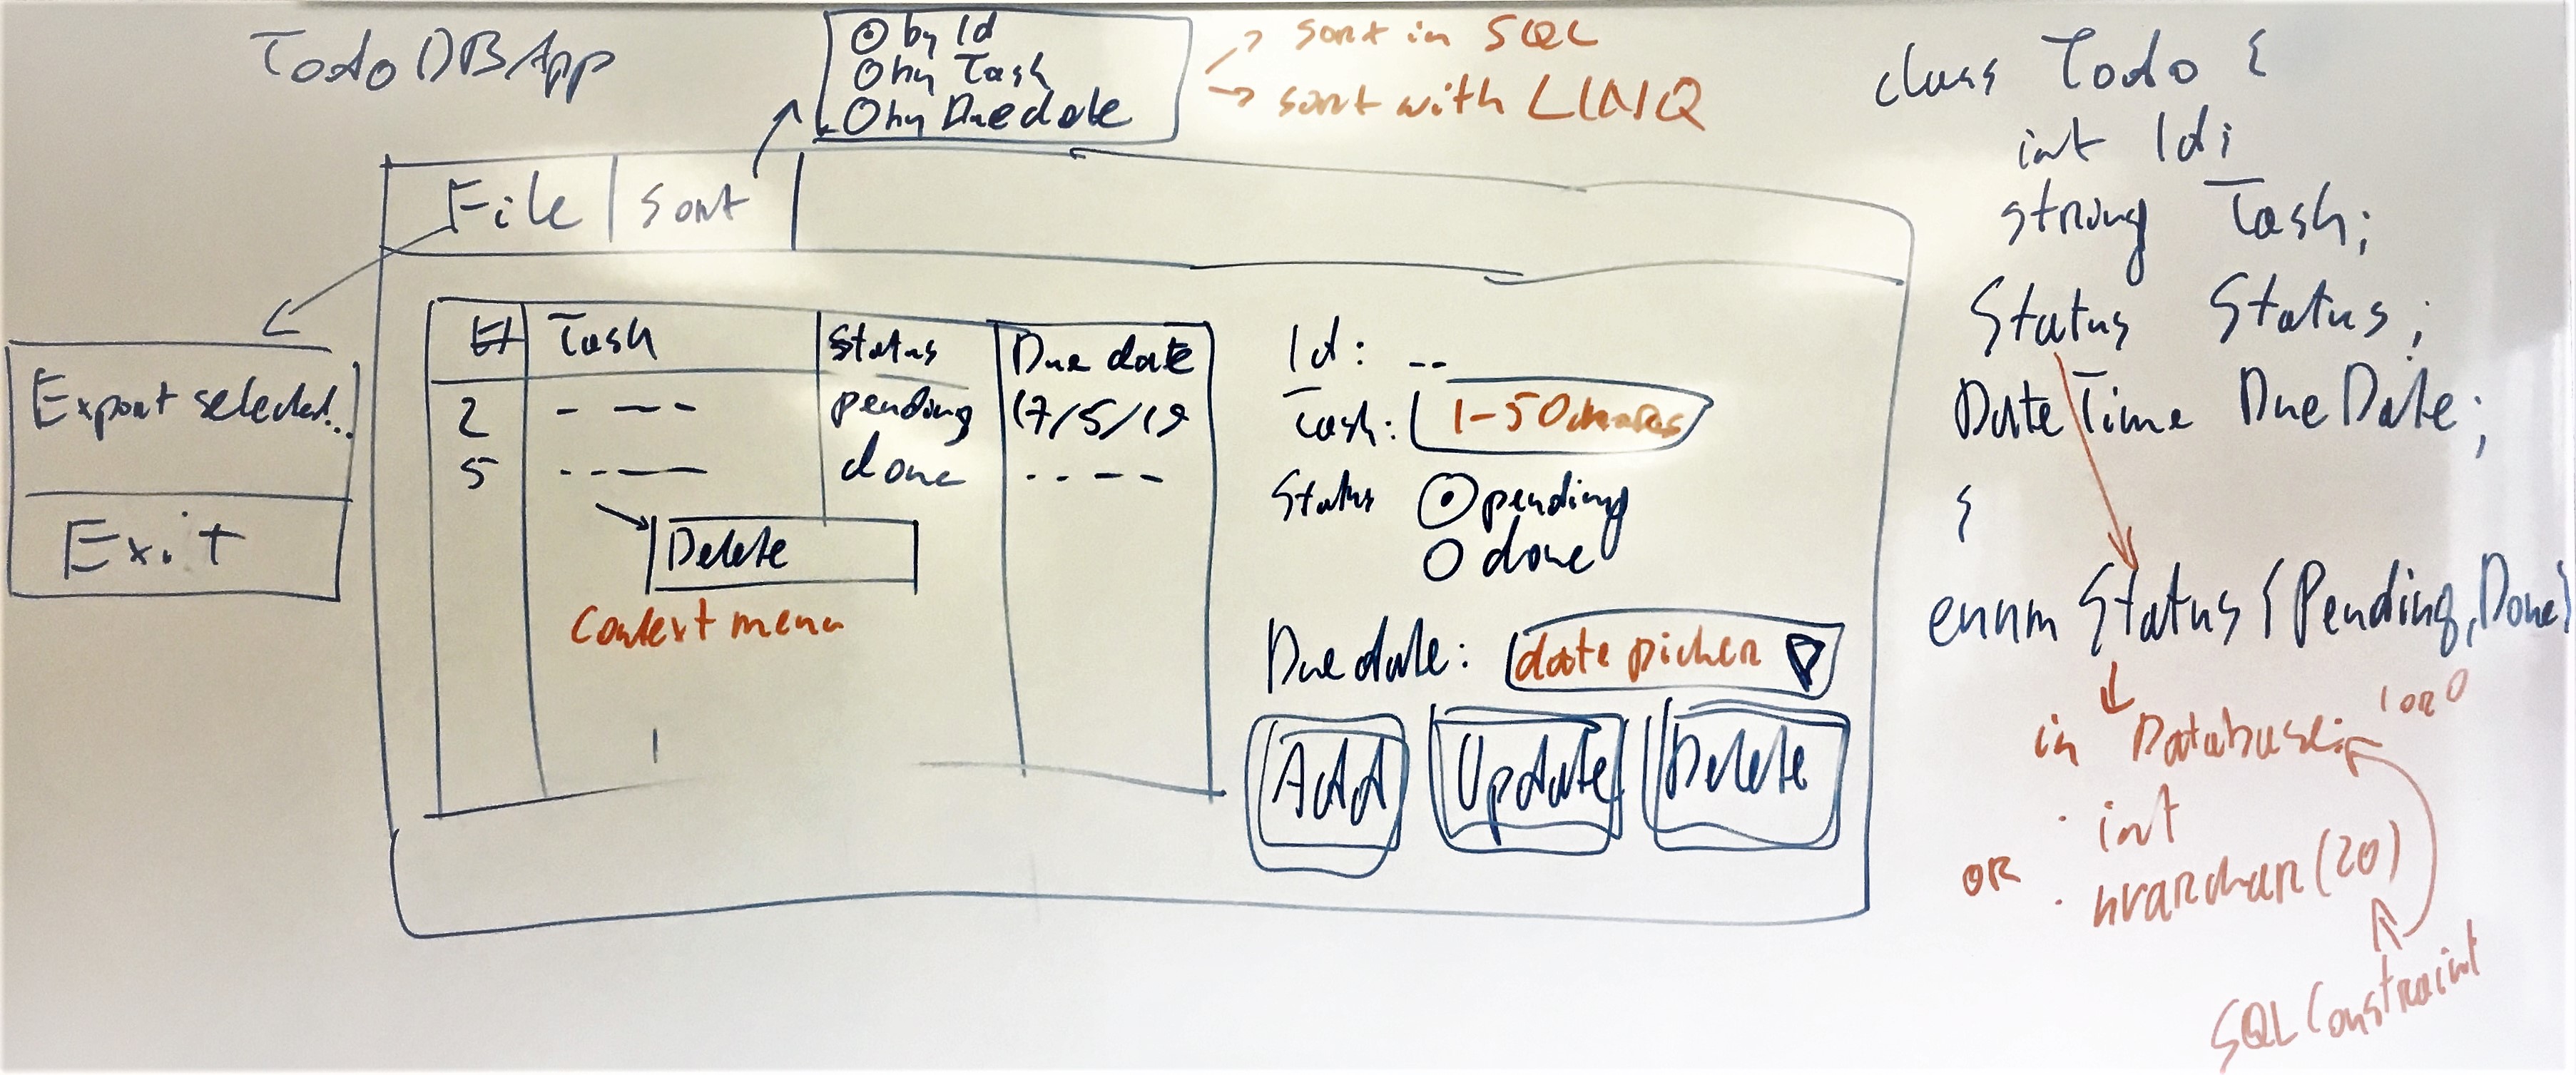 Todo DB App
by Id
by Task
by Due date
sort in SQL
sort with LINQ
File
Sort
Export selected...
Exit
Task
Status
Due date
2
pending
17/5/19
5
done
Delete
Context menu
Id: --
Task:
1-50
Status
pending
done
Due date:
date picker
Add
Update
Delete
class Todo {
int Id;
string Task;
Status Status;
DateTime DueDate;
}
enum Status {Pending, Done}
in Database:
1 or 0
. int
OR
. nvarchar(20)
SQL Constraint